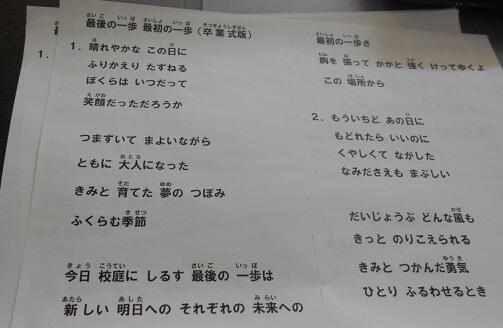 最後の一歩 最初の一歩（卒業式版）
1.
1. 晴れやかな この日に
ふりかえり たずねる
ぼくらは いつだって
笑顔だっただろうか
つまずいて まよいながら
ともに 大人になった
きみと 育てた 夢の つぼみ
ふくらむ季節
今日 校庭に しるす 最後の 一歩は
新しい 明日への それぞれの 未来への
最初の一歩さ
胸を 張って かかと 強く けってゆくよ
この 場所から
2. もういちど あの日に
もどれたら いいのに
くやしくて ながした
なみださえも まぶしい
だいじょうぶ どんな風も
きっと のりこえられる
きみと つかんだ勇気
ひとり ふるわせるとき